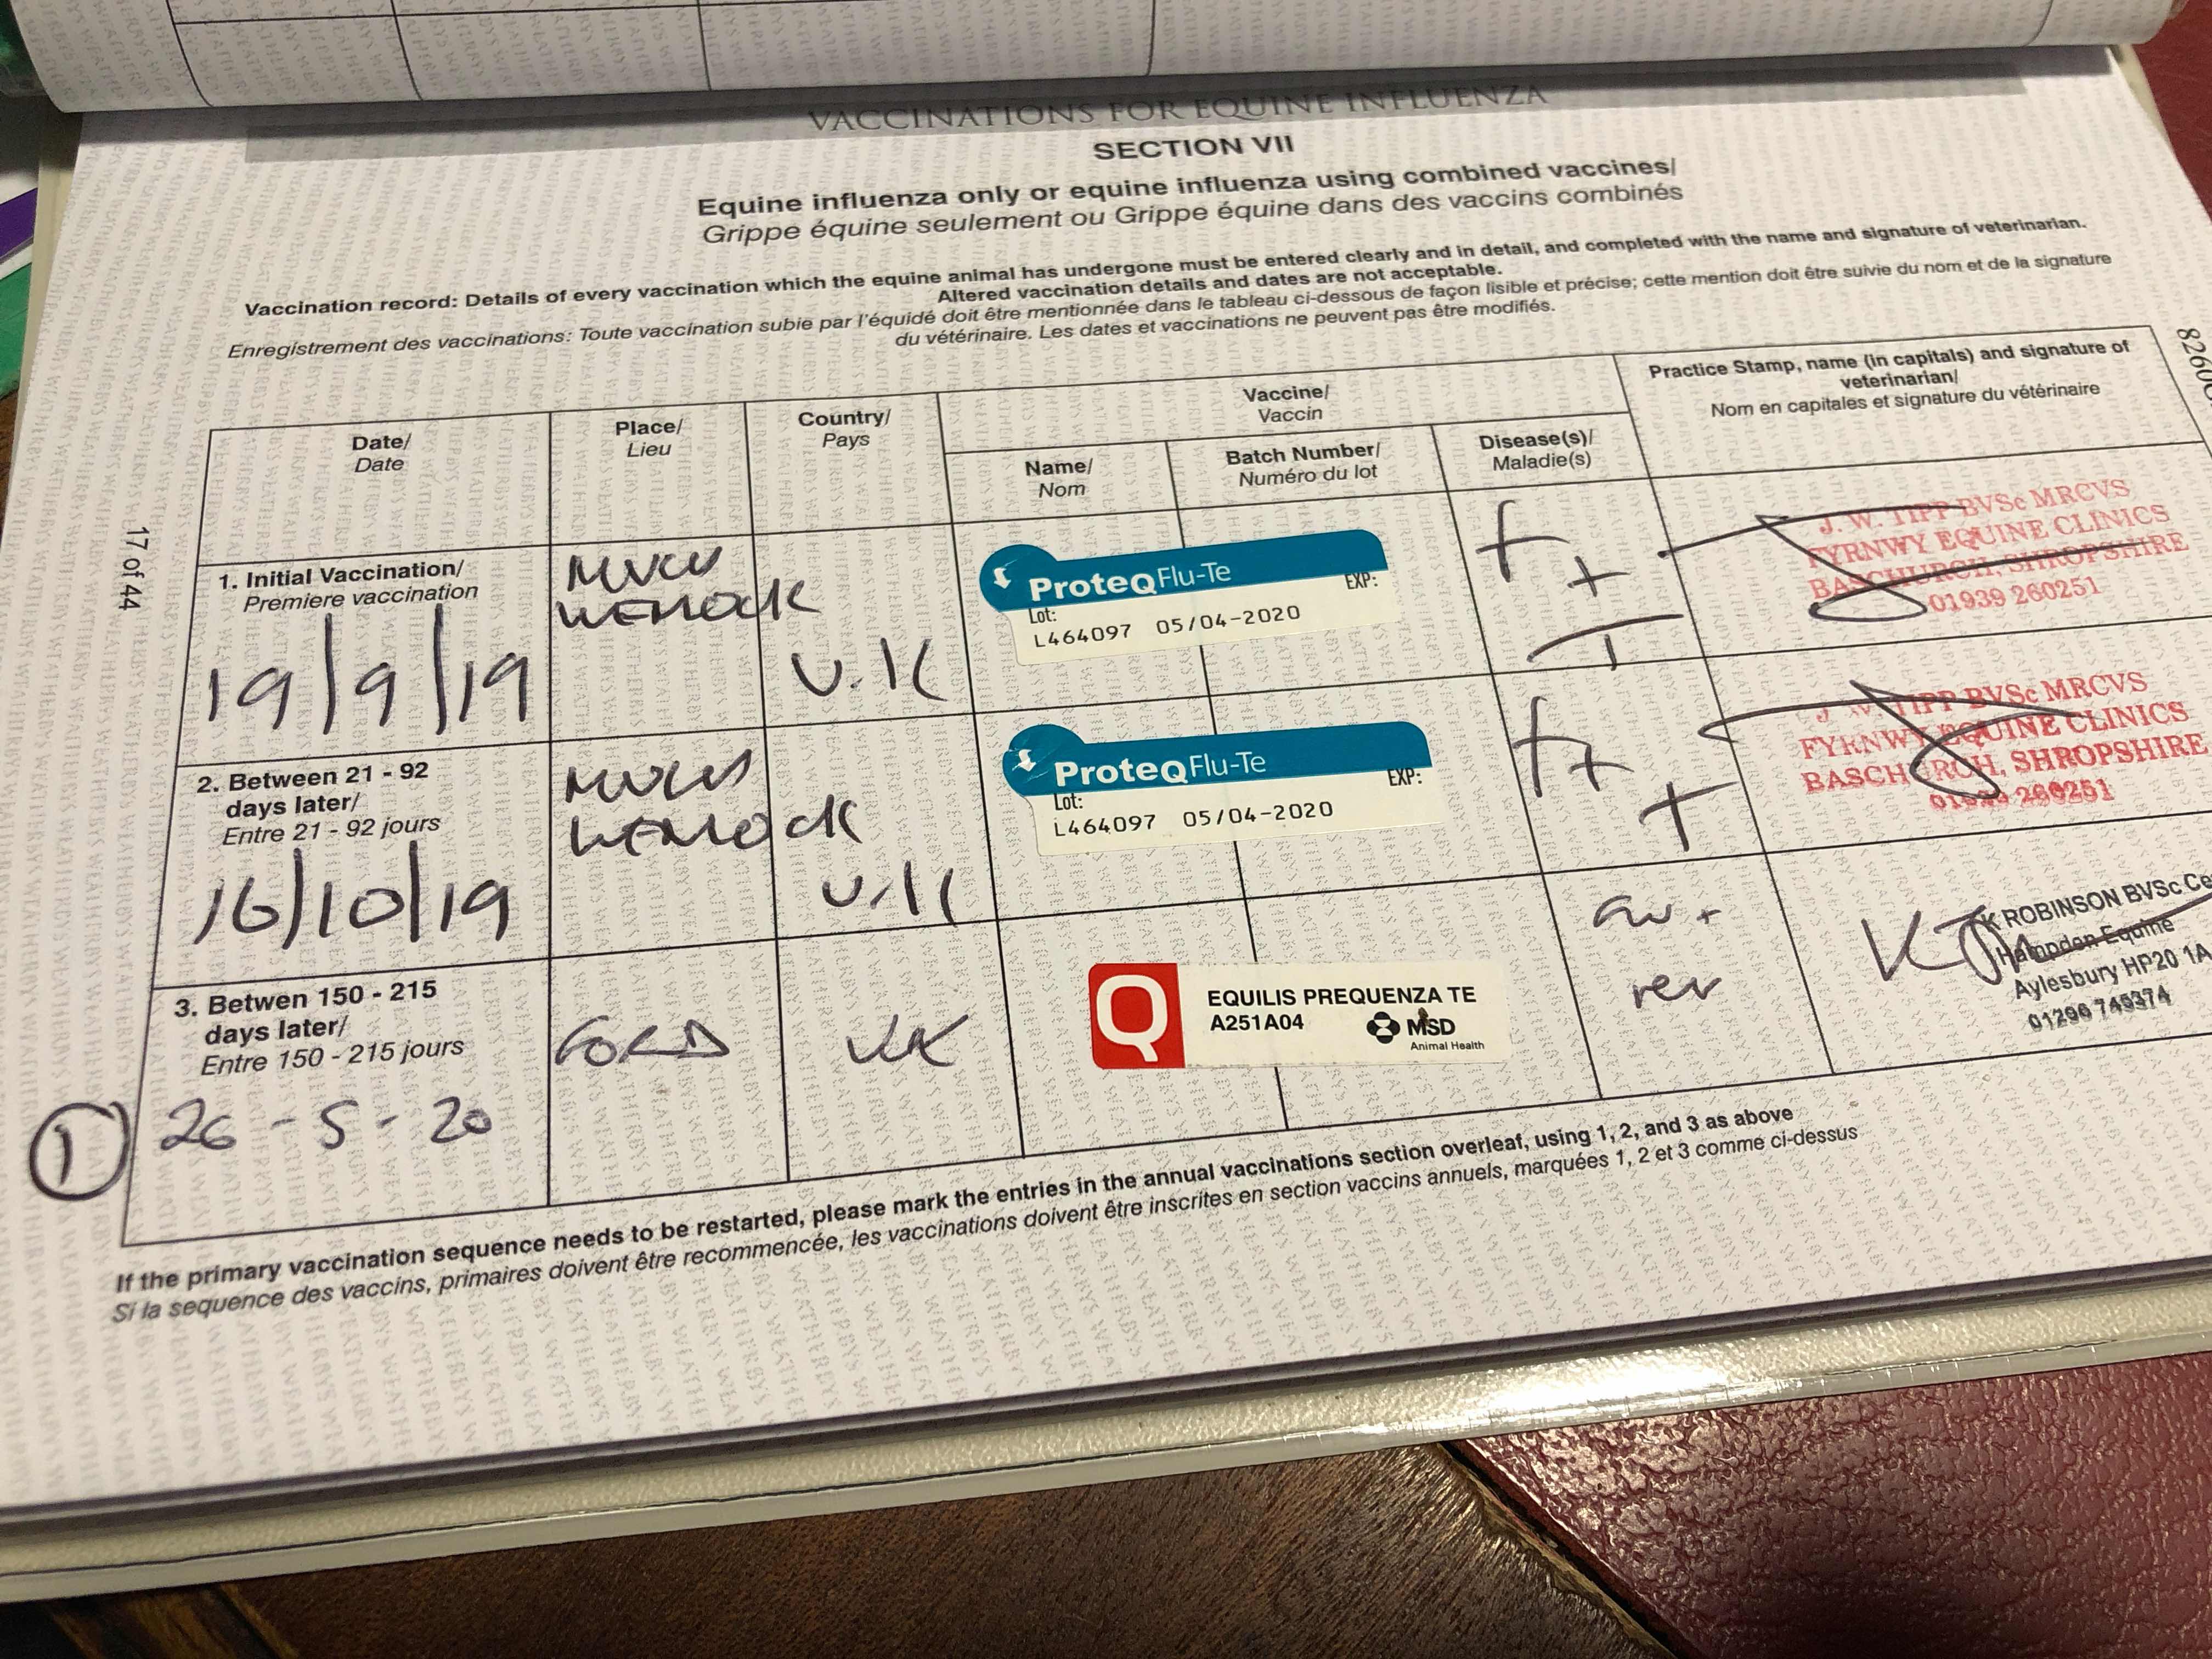 VACCINATIONS FOR EQUINE INFLUENZA
SECTION VII
Equine influenza only or equine influenza using combined vaccines/
Grippe équine seulement ou Grippe équine dans des vaccins combinés
Vaccination record: Details of every vaccination which the equine animal has undergone must be entered clearly and in detail, and completed with the name and signature of veterinarian.
Altered vaccination details and dates are not acceptable.
Enregistrement des vaccinations: Toute vaccination subie par l'équidé doit être mentionnée dans le tableau ci-dessous de façon lisible et précise; cette mention doit être suivie du nom et de la signature
du vétérinaire. Les dates et vaccinations ne peuvent pas être modifiés.
17 of 44
8260
Date/
Date
Place/
Lieu
Country/
Pays
Vaccine/
Vaccin
Name/
Nom
Batch Number/
Numéro du lot
Disease(s)/
Maladie(s)
Practice Stamp, name (in capitals) and signature of
veterinarian/
Nom en capitales et signature du vétérinaire
1. Initial Vaccination/
Premiere vaccination
19/9/19
WENLOCK
U.K
ProteqFlu-Te
Lot:
EXP:
L464097 05/04-2020
F
+
T
J. W. TIPP BVSc MRCVS
FYRNWY EQUINE CLINICS
BASCHURCH, SHROPSHIRE
01939 260251
2. Between 21 - 92
days later/
Entre 21 - 92 jours
16/10/19
WENLOCK
U.K
ProteqFlu-Te
Lot:
EXP:
L464097 05/04-2020
F+
T
J. W. TIPP BVSc MRCVS
FYRNWY EQUINE CLINICS
BASCHURCH, SHROPSHIRE
01939 260251
3. Betwen 150 - 215
days later/
Entre 150 - 215 jours
1
26 - 5 - 20
FORD
UK
EQUILIS PREQUENZA TE
A251A04
MSD
Animal Health
K ROBINSON BVSc
Hampden Equine
Aylesbury HP20 1A
If the primary vaccination sequence needs to be restarted, please mark the entries in the annual vaccinations section overleaf, using 1, 2, and 3 as above
Si la sequence des vaccins, primaires doivent être recommencée, les vaccinations doivent être inscrites en section vaccins annuels, marquées 1, 2 et 3 comme ci-dessus